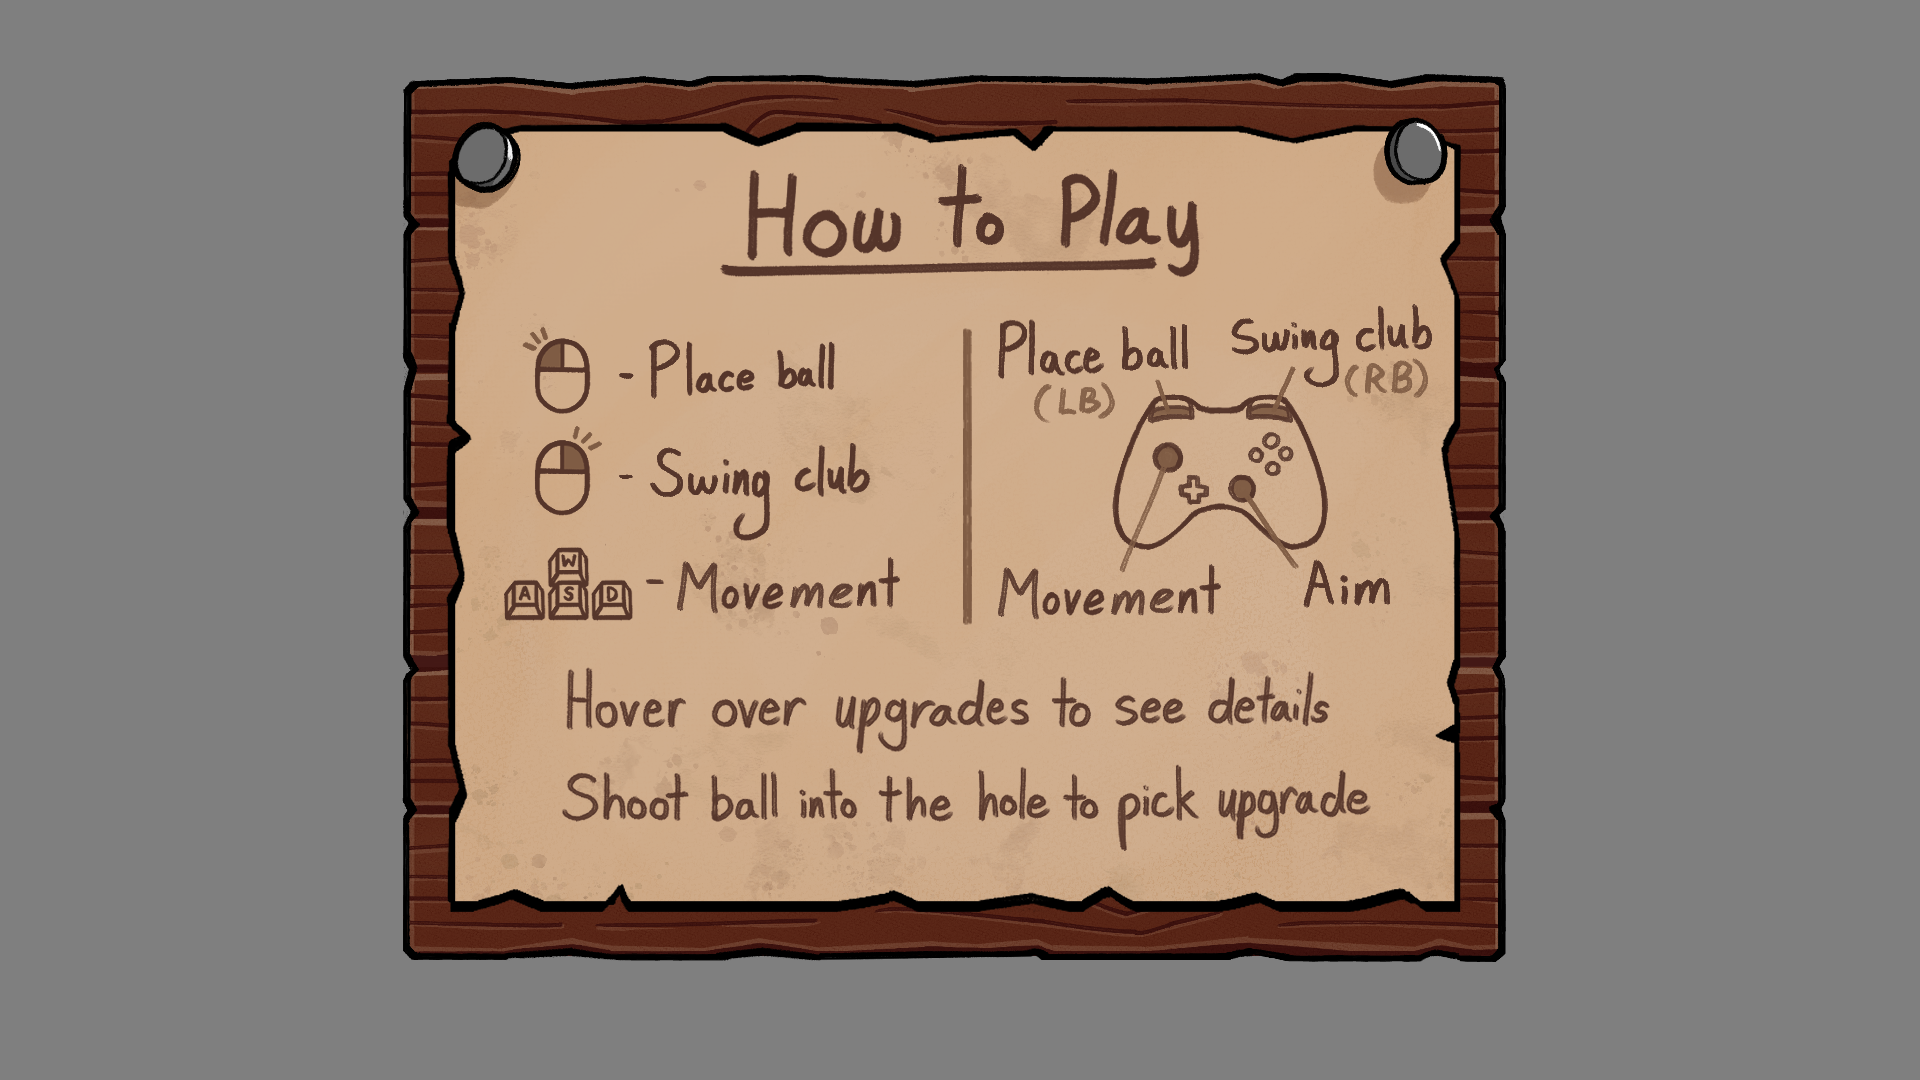 How to Play
- Place ball
- Swing club
W
A S D - Movement
Place ball
(LB)
Swing club
(RB)
Movement
Aim
Hover over upgrades to see details
Shoot ball into the hole to pick upgrade